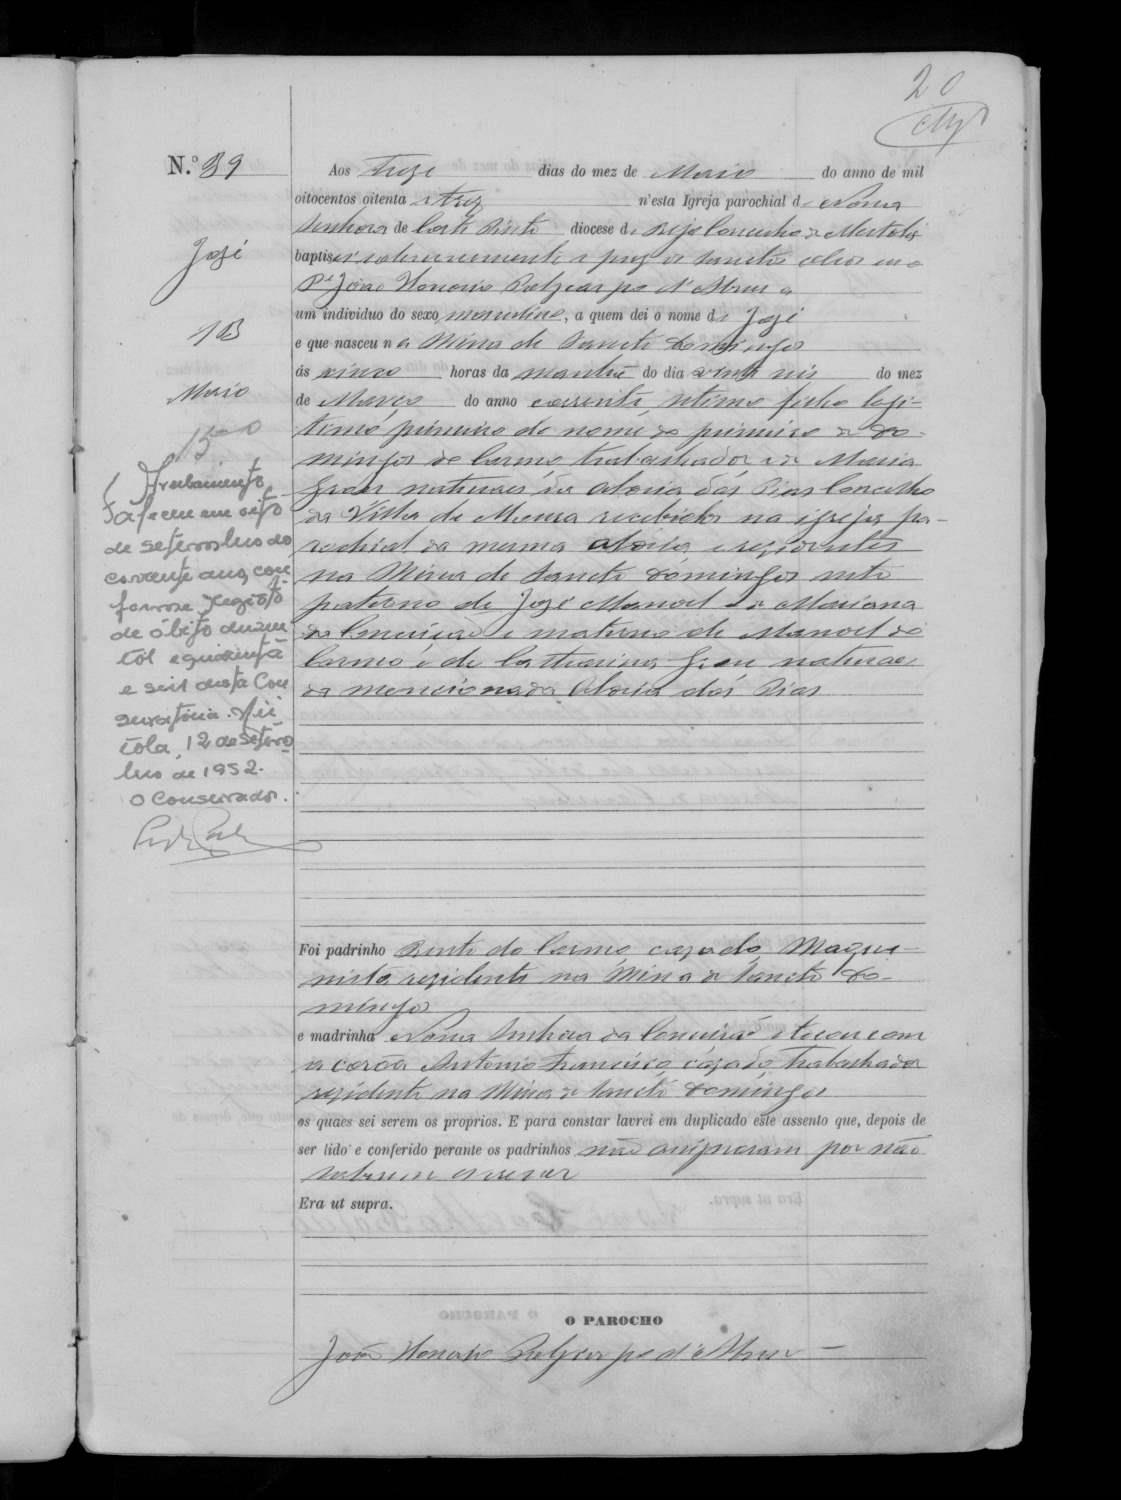 20
N.º 39
José
13
Maio
Aos treze dias do mez de Maio do anno de mil
oitocentos oitenta e trez n'esta Igreja parochial de Nossa
Senhora de Corte Pinto diocese de Beja Concelho de Mertola
baptisei solemnemente e puz os sanctos oleos eu o
P.e João Honorio Polycarpo d'Abreu a
um individuo do sexo masculino, a quem dei o nome de José
e que nasceu na Mina de Sancto Domingos
ás cinco horas da manhã do dia vinte seis do mez
de Março do anno corrente, setimo filho legi-
timo, primeiro do nome do primeiro de Do-
mingos do Carmo, trabalhador e de Maria
naturaes da Aldeia dos Pias Concelho
da Villa de Moura recebidos na igreja pa-
rochial da mesma Aldeia, e residentes
na Mina de Sancto Domingos neto
paterno de José Manoel e de Mariana
da Conceição e materno de Manoel do
Carmo e de Catharina naturaes
da mencionada Aldeia dos Pias
Averbamento
Faleceu em oito
de setembro do
corrente ano, con
forme registo
de óbito
e quarenta
e seis desta Con
servatória. Mér
tola, 12 de Setem
bro de 1952.
O Conservador.
Foi padrinho Bento do Carmo, cazado, Maqui-
nista rezidente na Mina de Sancto Do-
mingos
e madrinha Nossa Senhora da Conceição e tocou com
a corôa Antonio Francisco, cazado, trabalhador
rezidente na Mina de Sancto Domingos
os quaes sei serem os proprios. E para constar lavrei em duplicado este assento que, depois de
ser lido e conferido perante os padrinhos não assignaram por não
saberem escrever
Era ut supra.
O PAROCHO
João Honorio Polycarpo d'Abreu